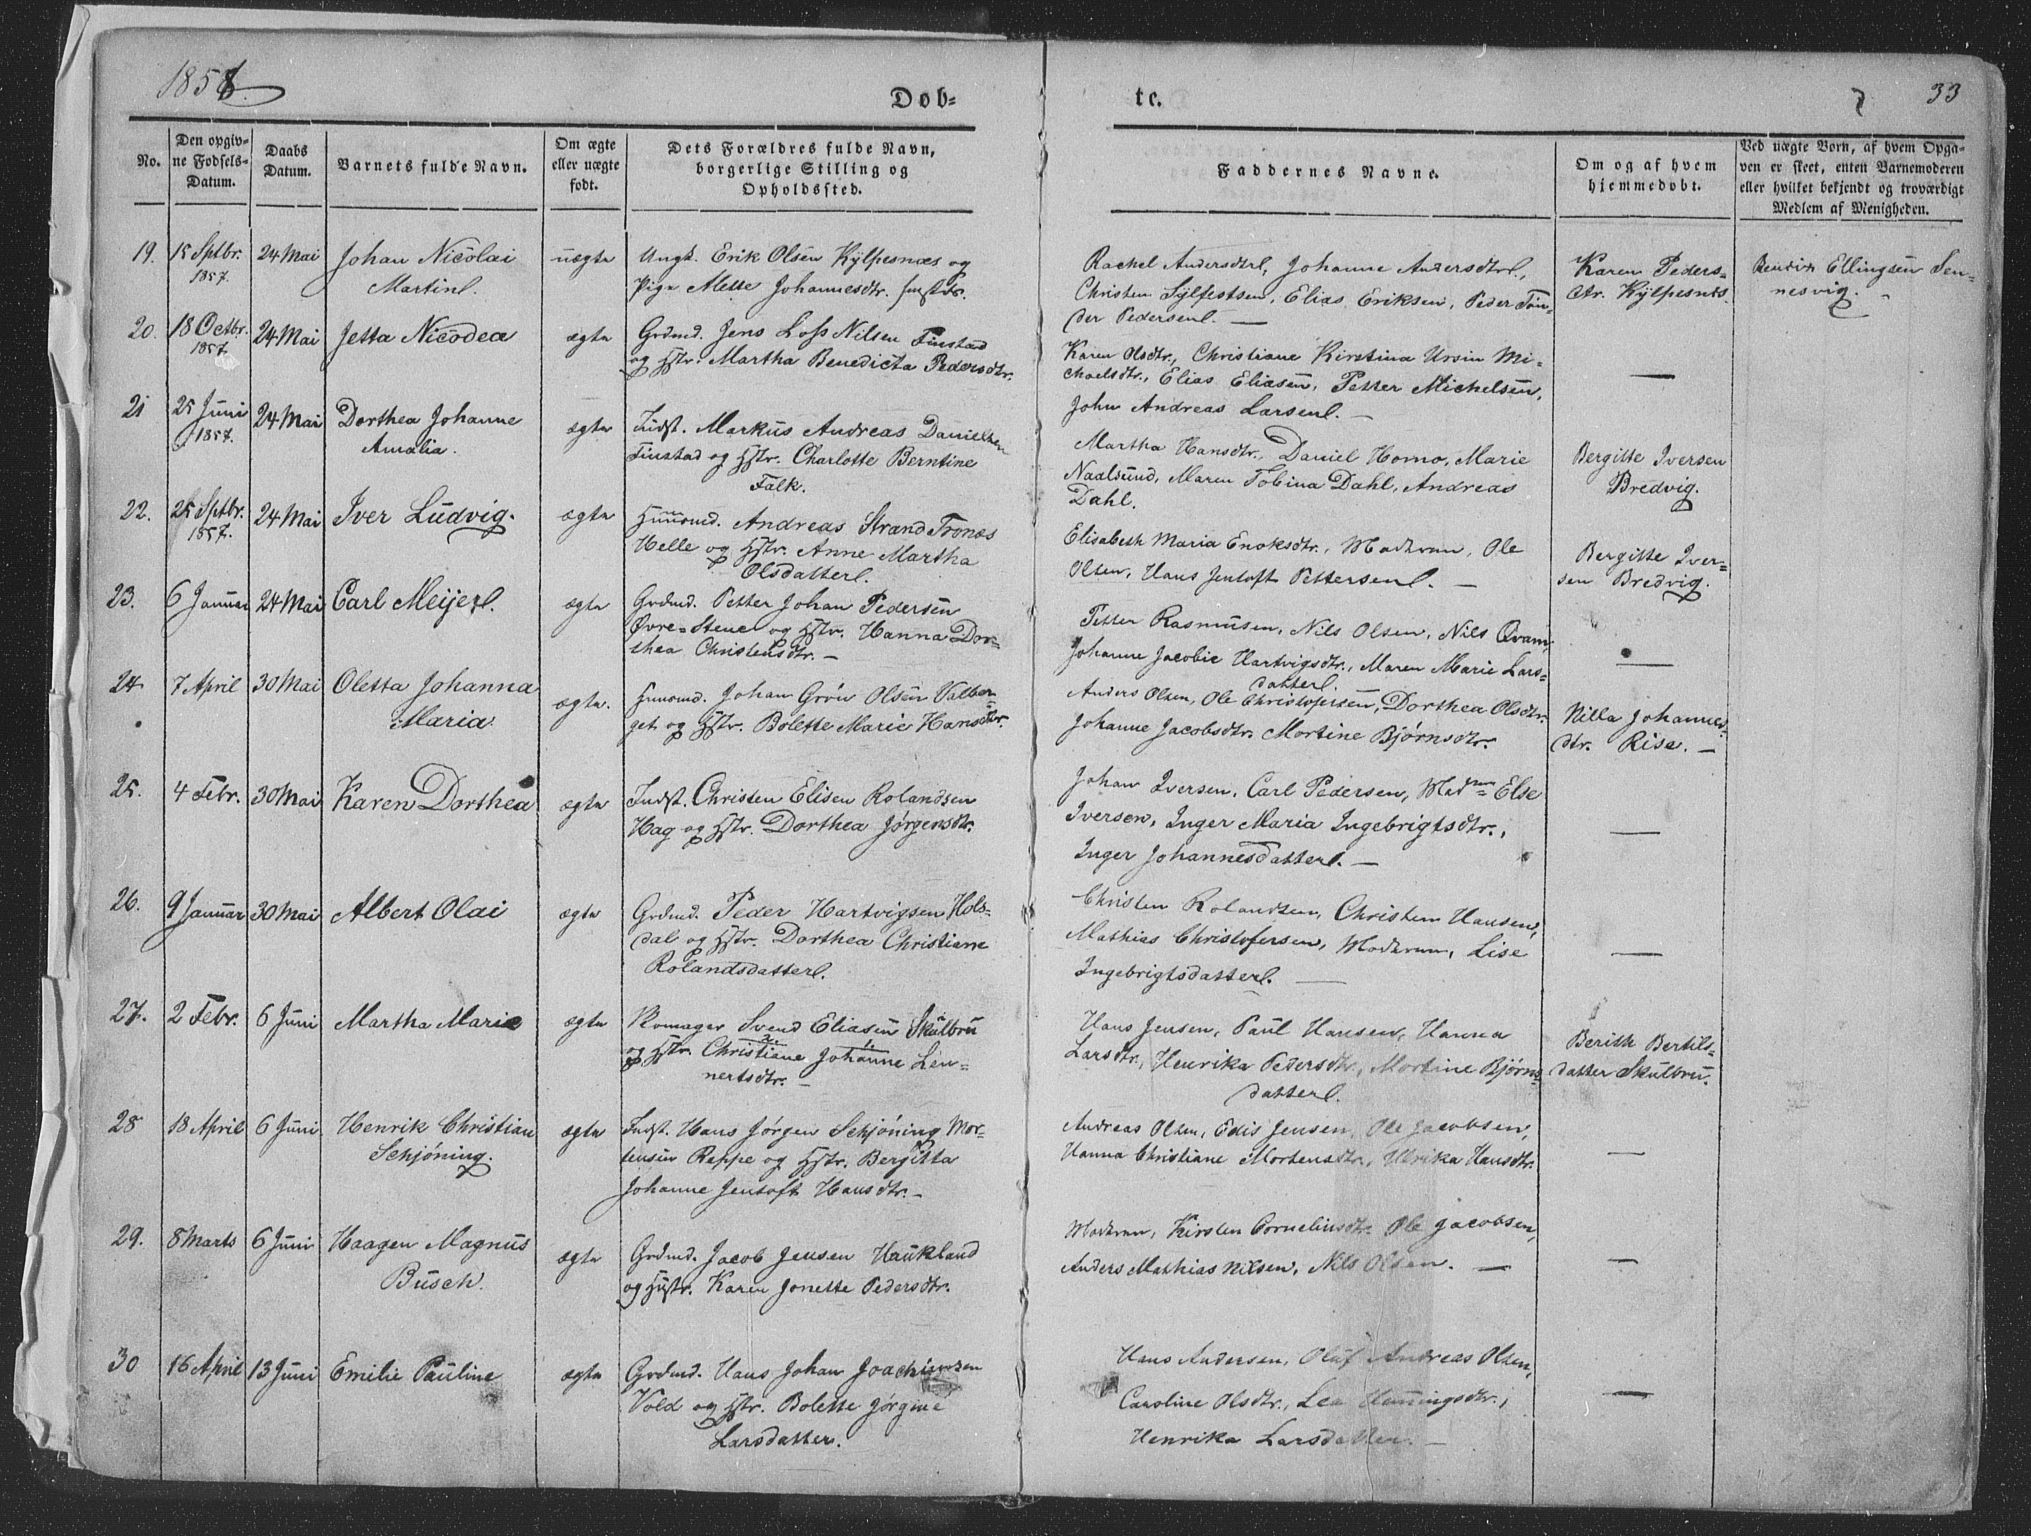 1858.
Døb-
te.
33
No.
Den opgiv-
ne Fødsels-
Datum.
Daabs
Datum.
Barnets fulde Navn.
Om ægte
eller uægte
født.
Dets Forældres fulde Navn,
borgerlige Stilling og
Opholdssted.
Faddernes Navne.
Om og af hvem
hjemmedøbt.
Ved uægte Børn, af hvem Opga-
ven er skeet, enten Barnemoderen
eller hvilket bekjendt og troværdigt
Medlem af Menigheden.
19. 15 Sptbr. 1857. 24 Mai
Johan Nicolai
Martin.
uægte
Ungk. Erik Olsen Kylpesnæs og
Pige Mette Johannesdtr.
Rachel Andersdtr., Johanne Andersdtr.,
Christen Sylfestsen, Elias Eriksen, Peder Tøn-
der Pedersen. —
Karen Peders-
dtr. Kylpesnæs.
Bendix Ellingsen Sen-
nesvig.
20. 18 Octbr. 1857. 24 Mai
Jetta Nicodea
ægte
Grdmd. Jens Loss Nilsen Finstad
og Hstr. Martha Benedicta Pedersdtr.
Karen Olsdtr., Christiane Kirstina Ursin Mi-
chaelsdtr., Elias Eliasen, Petter Michelsen,
John Andreas Larsen. —
—
21 25 Juni 1857. 24 Mai
Dorthea Johanne
Amalia.
ægte
Indst. Markus Andreas Danielsen
Finstad og Hstr. Charlotte Berntine
Falk.
Martha Hansdtr., Daniel Homo, Marie
Naalsund, Maren Tobina Dahl, Andreas
Dahl.
Bergitte Iversen
Bredvig.
22. 25 Sptbr. 1857. 24 Mai
Iver Ludvig.
ægte
Huusmd. Andreas Strand Tronæs
Helle og Hstr. Anne Martha
Olsdatter.
Elisabeth Maria Enoksdtr., Modren, Ole
Olsen, Hans Jentoft Pettersen. —
Bergitte Iver-
sen Bredvig.
23. 6 Januar 24 Mai
Carl Meijer.
ægte
Grdmd. Petter Johan Pedersen
Øvre-Steue og Hstr. Hanna Dor-
thea Christensdtr. —
Petter Rasmusen, Nils Olsen, Nils Qvam,
Johanne Jacobie Hartvigsdtr., Maren Marie Lars-
datter.
—
24 7 April 30 Mai
Oletta Johanna
Maria.
ægte.
Huusmd. Johan Grøn Olsen Valber-
get og Hstr. Bolette Marie Hansdtr.
Anders Olsen, Ole Christofersen, Dorthea Olsdtr.
Johanne Jacobsdtr. Mortine Bjørnsdtr.
Nilla Johannes-
dtr. Rise. —
25. 4 Febr. 30 Mai
Karen Dorthea
ægte
Indst. Christen Elisen Rolandsen
Hag og Hstr. Dorthea Jørgensdtr.
Johan Iversen, Carl Pedersen, Madme Else
Iversen, Inger Maria Ingebrigtsdtr.,
Inger Johannesdatter. —
—
26. 9 Januar 30 Mai
Albert Olai
ægte
Grdmd. Peder Hartvigsen Hols-
dal og Hstr. Dorthea Christiane
Rolandsdatter.
Christen Rolandsen, Christen Hansen,
Mathias Christofersen, Modren, Lise
Ingebrigtsdatter. —
—
27. 2 Febr. 6 Juni
Martha Maria
ægte
Skomager Svend Eliasen Skulbru
og Hstr. Christiane Johanne Len-
nertsdtr. —
Hans Jensen, Paul Hansen, Hanna
Larsdtr., Henrika Pedersdtr., Mortine Bjørns-
datter.
Berith Bertils-
datter Skulbru.
28 18 April 6 Juni
Henrik Christian
Schjøning.
ægte
Indst. Hans Jørgen Schjøning Mor-
tensen Reppe og Hstr. Bergitta
Johanne Jentoft Hansdtr. —
Andreas Olsen, Edis Jensen, Ole Jacobsen,
Hanna Christiane Mortensdtr., Ulrika Hansdtr.
—
29. 8 Marts 6 Juni
Haagen Magnus
Busch.
ægte
Grdmd. Jacob Jensen Haukland
og Hustr. Karen Jonette Pedersdtr.
Modren, Kirsten Corneliusdtr. Ole Jacobsen,
Anders Mathias Nilsen, Nils Olsen. —
—
30 16 April 13 Juni
Emilie Pauline
ægte
Grdmd. Hans Johan Joachimsen
Vold og Hstr. Bolette Jørgine
Larsdatter.
Hans Andersen, Oluf Andreas Olsen,
Caroline Olsdtr., Lea Hemmingsdtr.,
Henrika Larsdatter. —
—